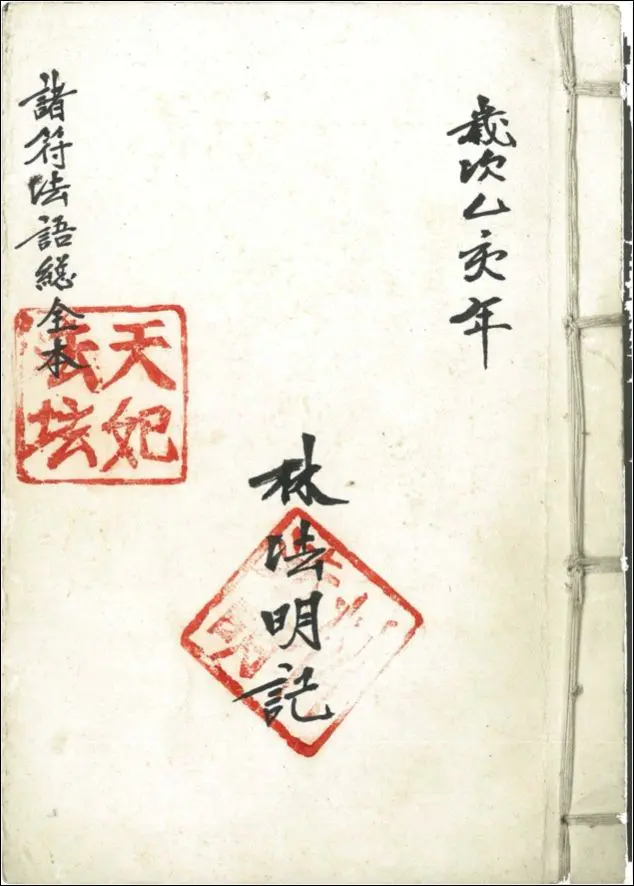 歲次乙亥年
林法明記
諸符法語総全本
天妃
法坛